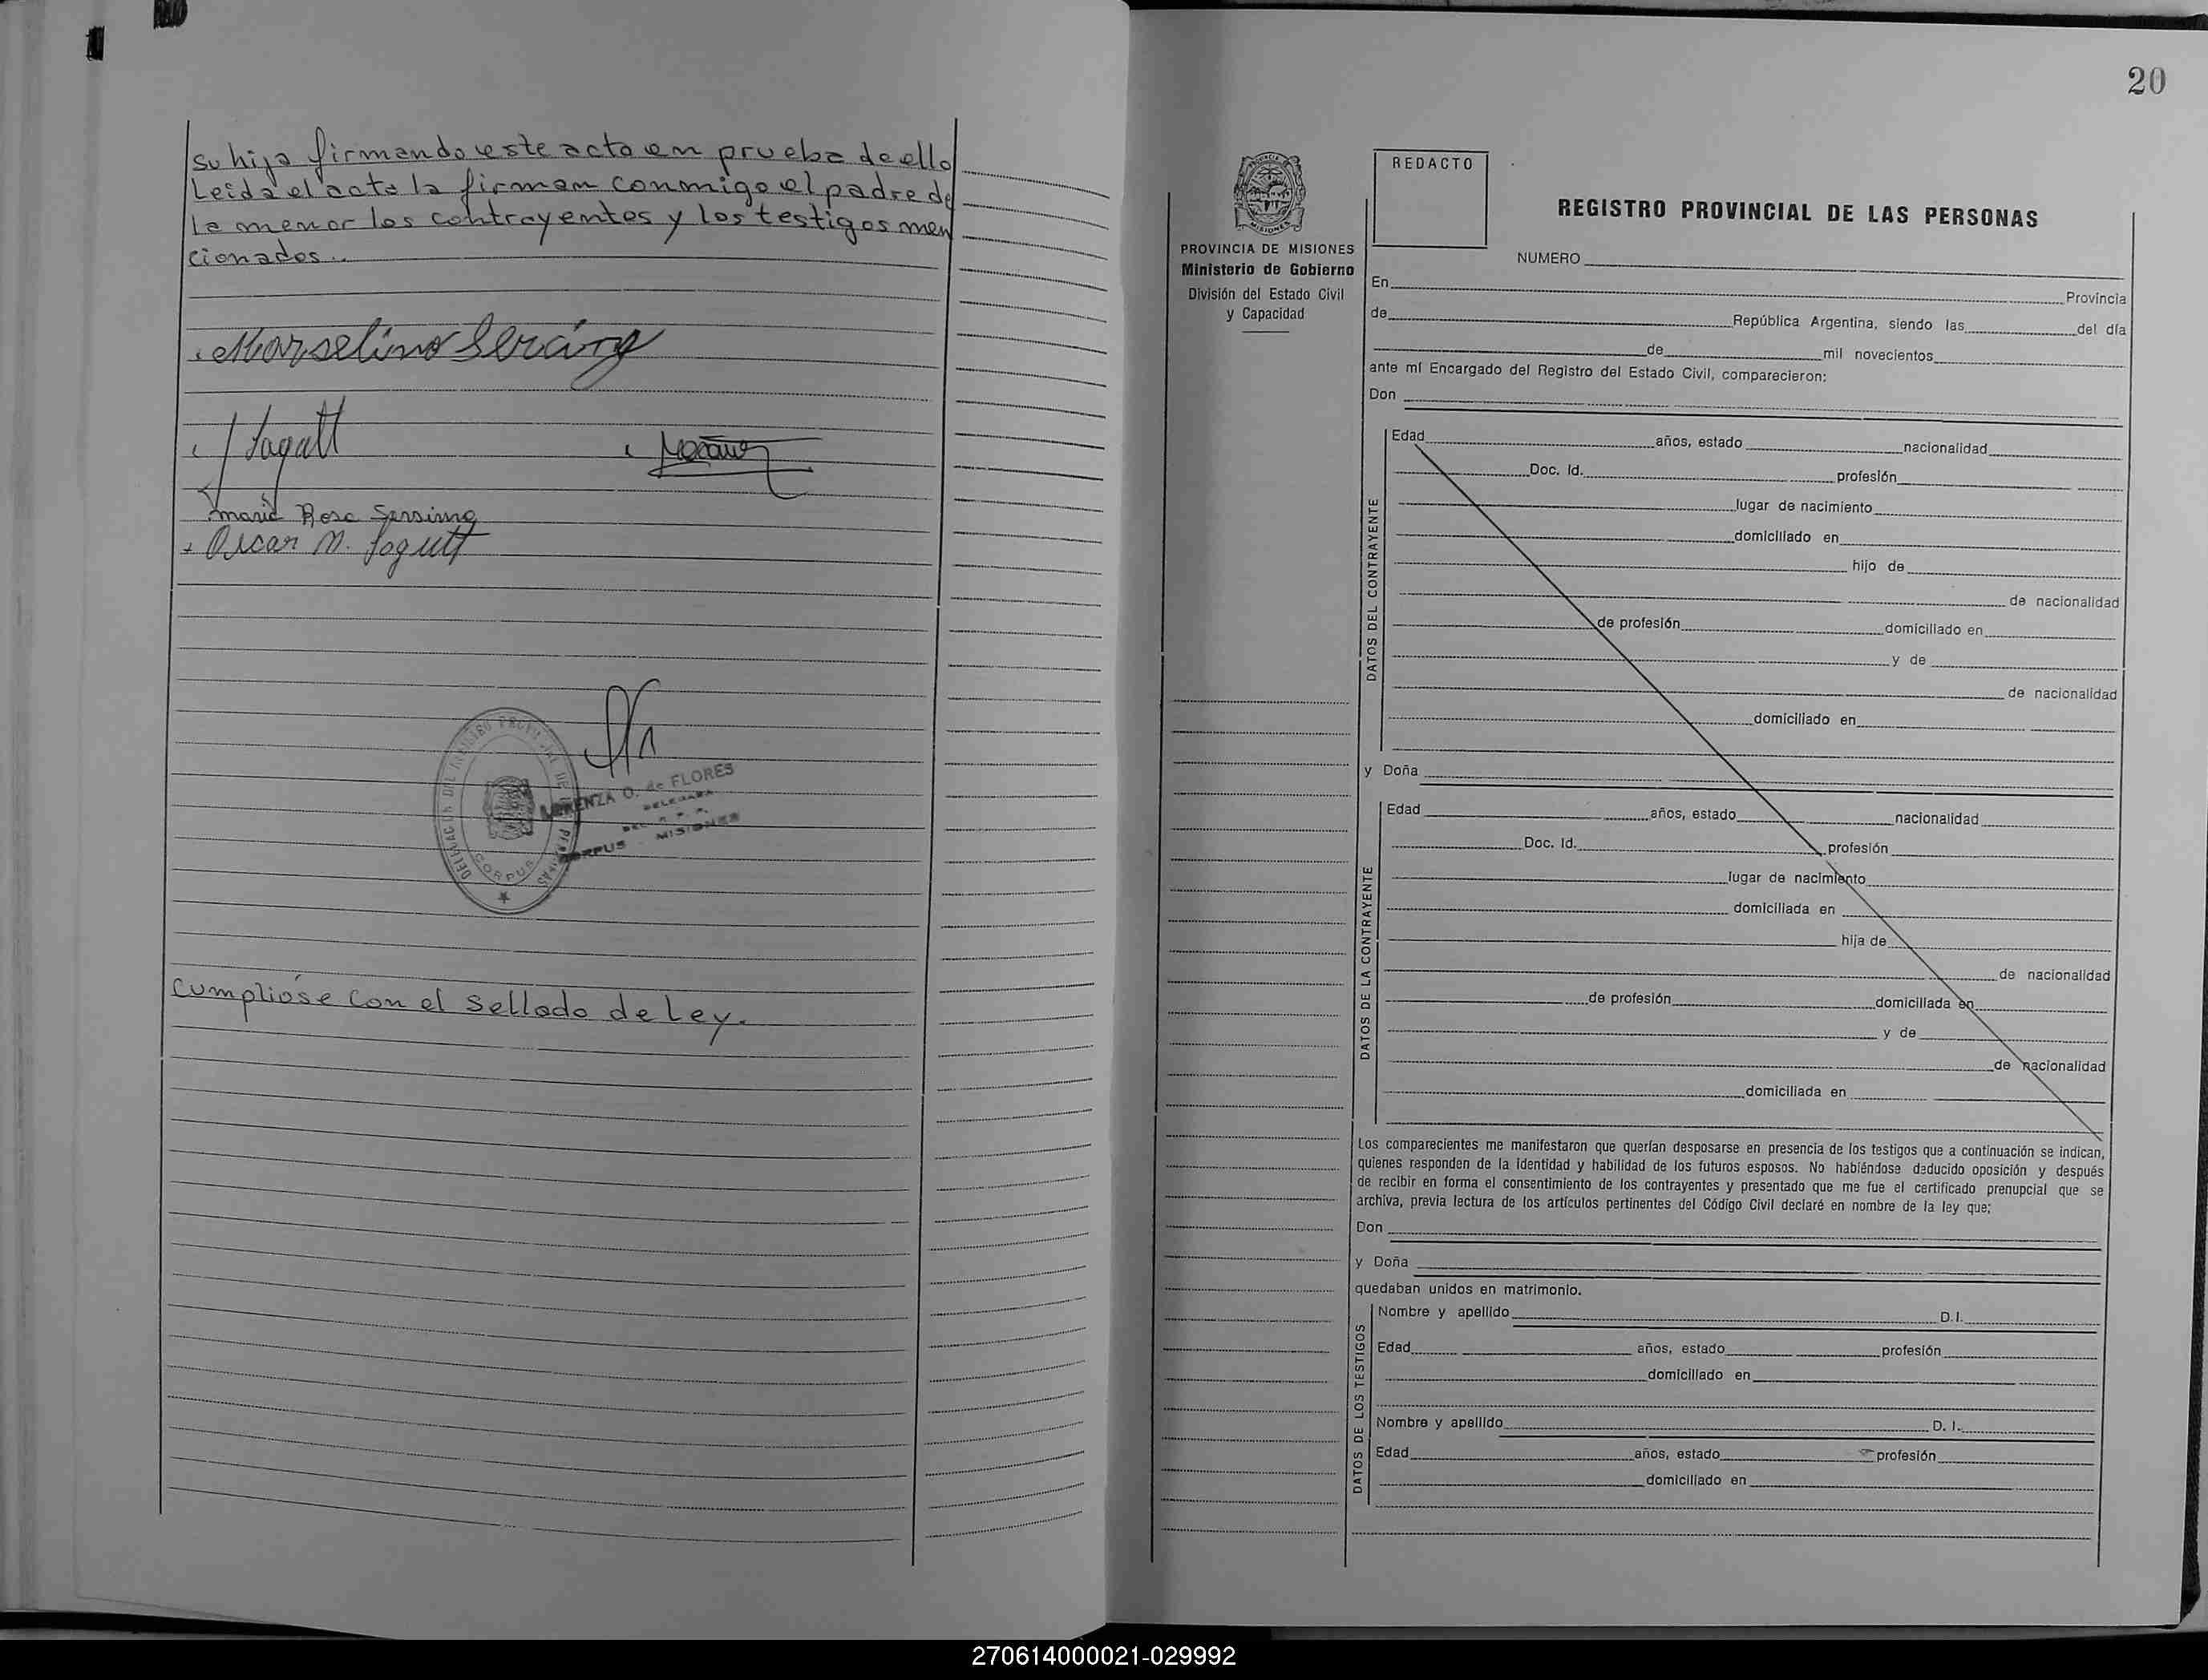 su hija firmando este acto en prueba de ello
Leida el acta la firman conmigo el padre de
la menor los contrayentes y los testigos men
cionados..
Marselino
Maria Rosa
Oscar M.
LORENZA O. de FLORES
DELEGADA
CORPUS - MISIONES
CORPUS
Cumplióse con el sellado de Ley.
20
PROVINCIA DE MISIONES
Ministerio de Gobierno
División del Estado Civil
y Capacidad
REDACTO
REGISTRO PROVINCIAL DE LAS PERSONAS
NUMERO
En Provincia
de República Argentina, siendo las del día
de mil novecientos
ante mí Encargado del Registro del Estado Civil, comparecieron:
Don
DATOS DEL CONTRAYENTE
Edad años, estado nacionalidad
Doc. Id. profesión
lugar de nacimiento
domiciliado en
hijo de
de nacionalidad
de profesión domiciliado en
y de
de nacionalidad
domiciliado en
y Doña
DATOS DE LA CONTRAYENTE
Edad años, estado nacionalidad
Doc. Id. profesión
lugar de nacimiento
domiciliada en
hija de
de nacionalidad
de profesión domiciliada en
y de
de nacionalidad
domiciliada en
Los comparecientes me manifestaron que querían desposarse en presencia de los testigos que a continuación se indican,
quienes responden de la identidad y habilidad de los futuros esposos. No habiéndose deducido oposición y después
de recibir en forma el consentimiento de los contrayentes y presentado que me fue el certificado prenupcial que se
archiva, previa lectura de los artículos pertinentes del Código Civil declaré en nombre de la ley que:
Don
y Doña
quedaban unidos en matrimonio.
DATOS DE LOS TESTIGOS
Nombre y apellido D.I.
Edad años, estado profesión
domiciliado en
Nombre y apellido D. I.
Edad años, estado profesión
domiciliado en
270614000021-029992